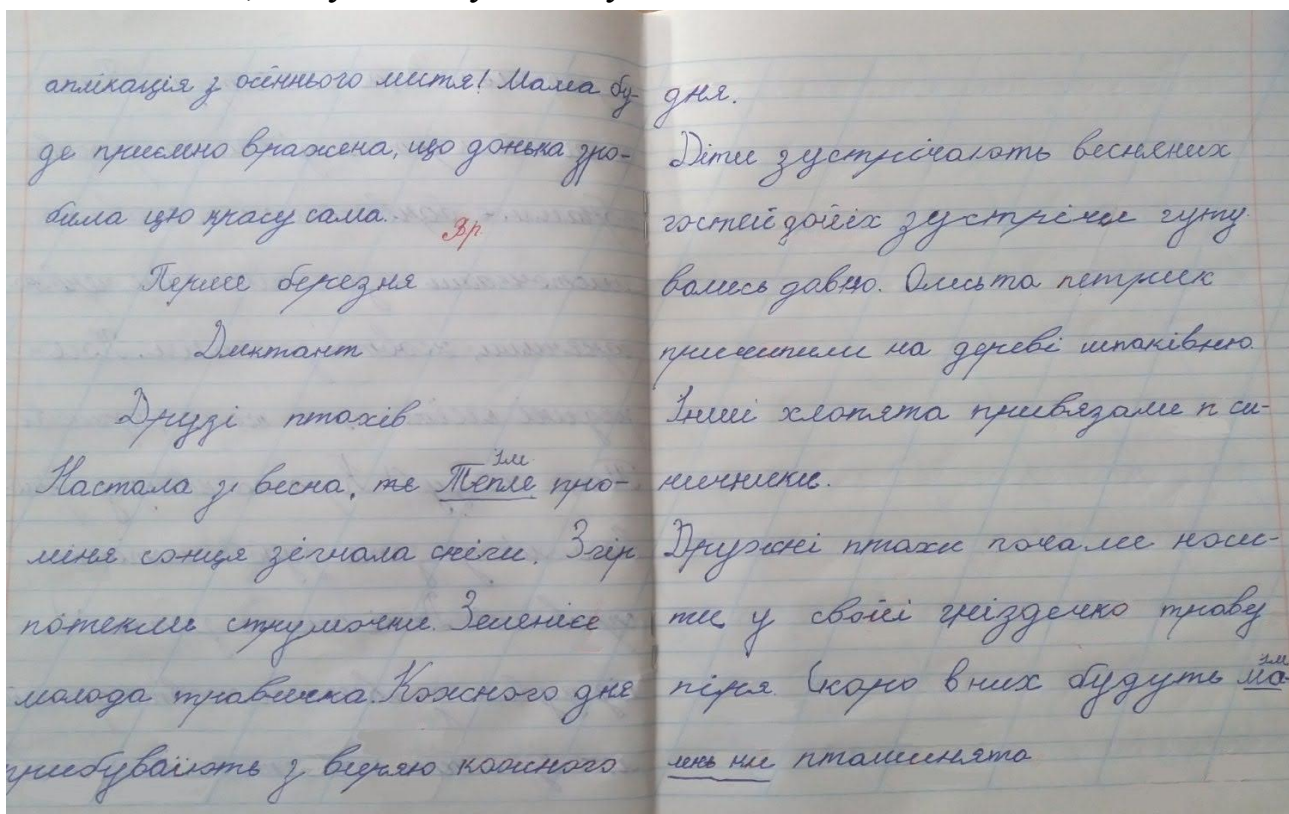 аплікація з осіннього листя! Мама бу-
де приємно вражена, що донька зро-
била цю красу сама.
Зр
Перше березня
Диктант
Друзі птахів
Настала з весна, те Тепле про-
Ім
міня сонця зігнала сніги. Згір
потекли струмочки. Зеленіє
молода травичка. Кожного дня
прибуваїють з виряю кожного
дня.
Діти зустрічають весняних
гостей доїїх зустрічи гуту
вались давно. Олесь та петрик
причипили на дереві шпаківню.
Інші хлопята привязали п си-
ничники.
Дружні птахи почали носи-
ти у свойі гніздечко траву
піря. Скоро вних будуть ма-
Ім
лень ки пташинята